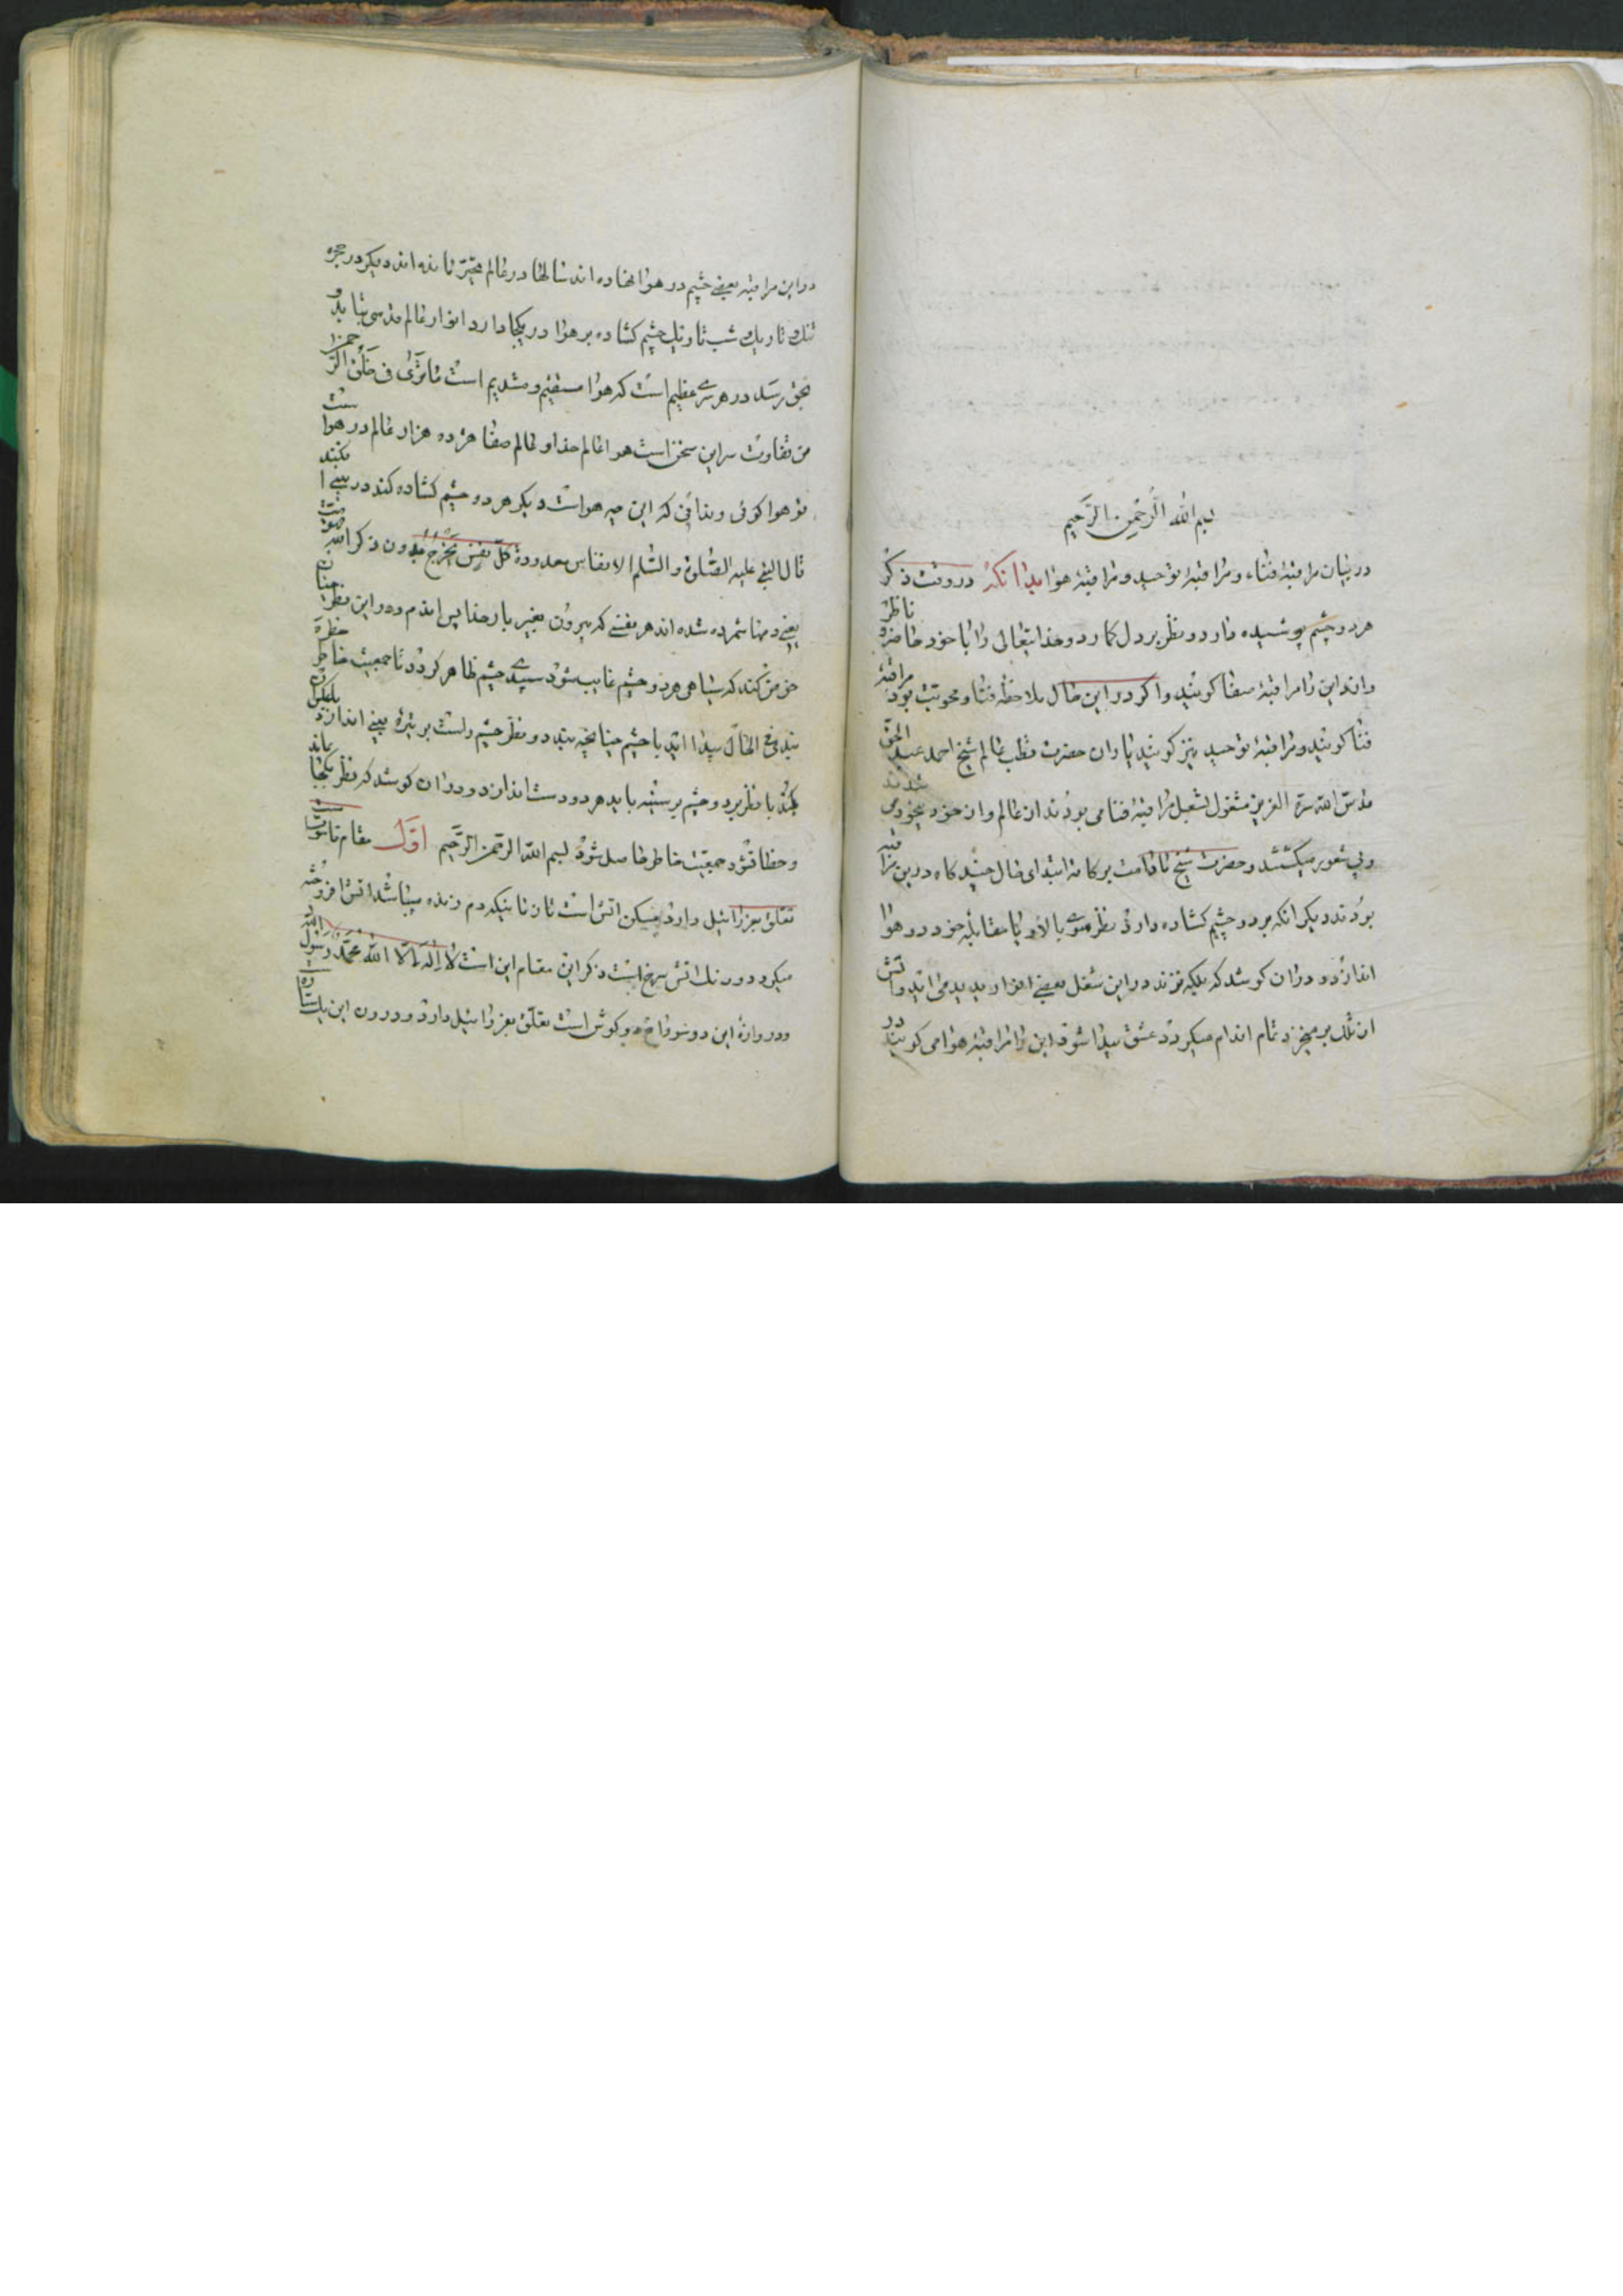 بسم الله الرحمن الرحیم
در بیان مراقبهٔ فناء و مراقبهٔ توحید و مراقبهٔ هوا بدانکه در وقت ذکر
هر دو چشم پوشیده دارد و نظر بر دل کمارد و خدایتعالی را با خود حاضر و ناظر
داند این را مراقبهٔ صفا کویند و اکر در این حال ملاحظه فنا و محویت بود مراقبهٔ
فنا کویند و مراقبهٔ توحید نیز کویند یاران حضرت قطب عالم شیخ احمد عبد الحق
قدس الله سره العزیز مشغول بشغل مراقبهٔ فنا می بودند از عالم و از خود بیخود می شدند
و بی شعور میکشتند و حضرت شیخ ما قدامت برکاته ابتدای حال چند کاه درین مراقبه
بودند دیکر انکه هر دو چشم کشاده دارد نظر سوی بالا و یا مقابله خود در هوا
اندازد و دران کوشد که پلک نزند در این شغل بعضی انوار پدید می اید و آتش
ازان بر میخیزد تمام اندام میکیرد عشق پیدا شود این را مراقبهٔ هوا می کویند در
در این مراقبه بعضی چشم در هوا نهاده اند سالها در عالم تحیر مانده اند دیکر در حجره
تنک تاریک شب تاریک چشم کشاده بر هوا در یکجا دارد انوار عالم قدسی بتابد و
بحق رسد در هر سری عظیم است که هوا مستقیم و قدیم است ما تری فی خلق الرحمن
من تفاوت سر این سخن است هوا عالم خدا و عالم صفا هژده هزار عالم در هوا است
تو هوا کوئی و ندانی که این چه هواست دیکر هر دو چشم کشاده کند در بینی نکند
قال النبی علیه الصلوة و السلم الانفاس معدودة کل نفس یخرج بدون ذکر الله فهو میت
یعنی دمها شمرده شده اند هر نفسی که بیرون بغیر یاد خدا پس اندم مرده و این نظر چنان
خوض کند که سیاهی هر دو چشم غایب شود سپیدی چشم ظاهر کردد تا جمعیت خاطر
بندد و نظر چشم راست بر پره بینی اندازد
بکند یا نظر بر دو چشم بر سینه یا بدهر دو دست اندازد و دران کوشد که نظر یکجا بماند
و خطا نشود جمعیت خاطر حاصل شود بسم الله الرحمن الرحیم اول مقام ناسوت
تعلق بعزرائیل دارد مسکن اتش است
میکردد و رنک اتش سرخ است ذکر این مقام این است لا اله الا الله محمد رسول الله
و دروازهٔ این دو سوراخ و کوش است تعلق بعزرائیل دارد و درون این یک ستاره